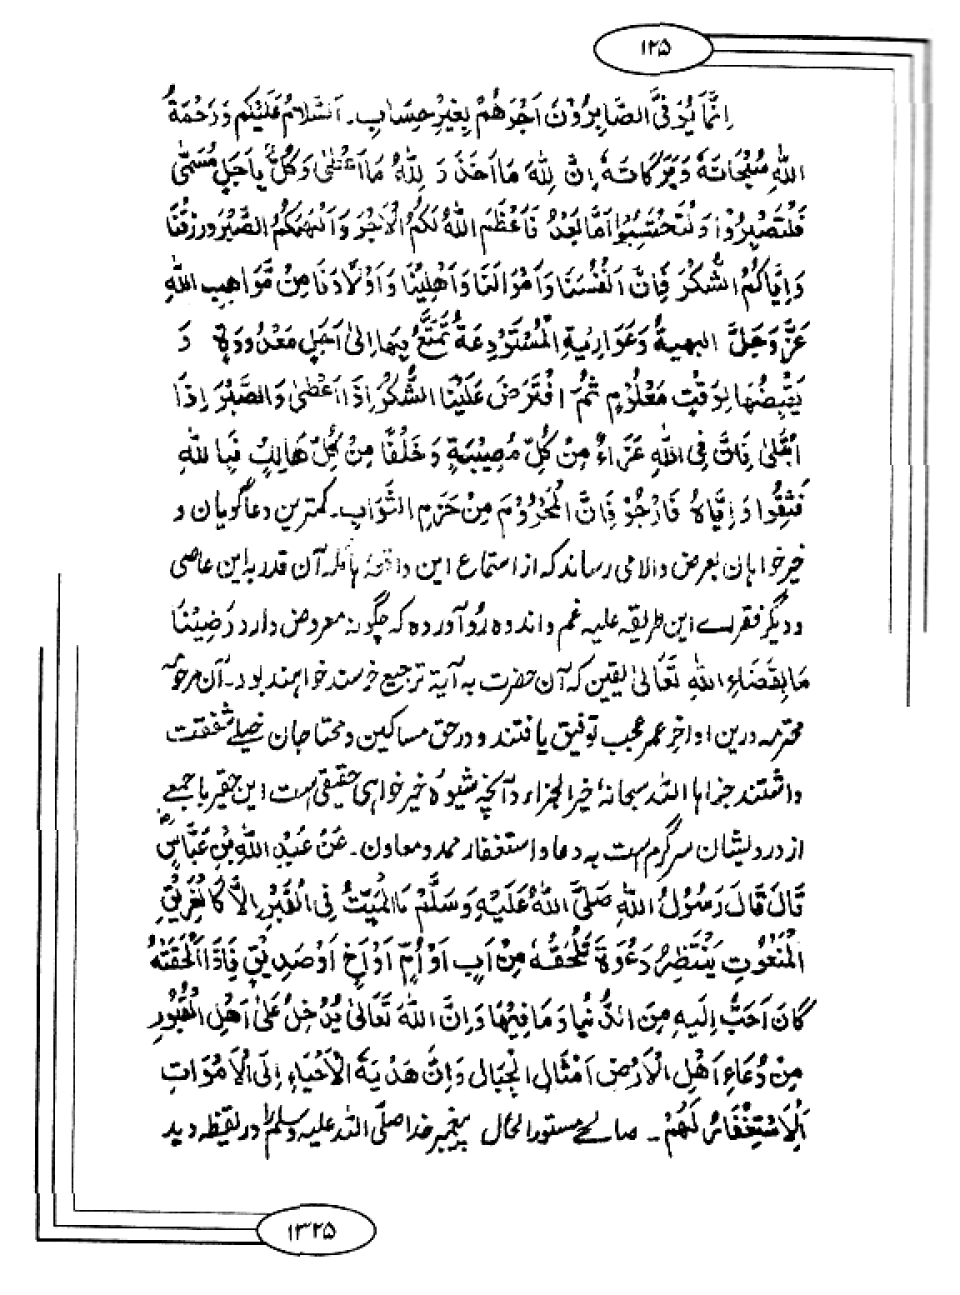 ۱۲۵
اِنَّمَا يُوَفَّى الصَّابِرُوْنَ اَجْرَهُمْ بِغَيْرِ حِسَابٍ۔ اَلسَّلَامُ عَلَيْكُمْ وَرَحْمَةُ
اللهِ سُبْحَانَهٗ وَبَرَكَاتُهٗ اِنَّ لِلّٰهِ مَا اَخَذَ وَ لِلّٰهِ مَا اَعْطٰى وَكُلٌّ بِاَجَلٍ مُسَمًّى
فَلْتَصْبِرُوْا وَلْتَحْتَسِبُوْا اَمَّا بَعْدُ فَاَعْظَمَ اللهُ لَكُمُ الْاَجْرَ وَاَلْهَمَكُمُ الصَّبْرَ وَرَزَقَنَا
وَاِيَّاكُمُ الشُّكْرَ فَاِنَّ اَنْفُسَنَا وَاَمْوَالَنَا وَاَهْلِيْنَا وَاَوْلَادَنَا مِنْ مَّوَاهِبِ اللهِ
عَزَّ وَجَلَّ الهيئة وَعَوَارِيْهِ الْمُسْتَوْدِعَةُ تُمَتَّعُ بِهَا اِلٰى اَجَلٍ مَعْدُوْدَةٍ وَ
يَقْبِضُهَا لِوَقْتٍ مَعْلُوْمٍ ثُمَّ افْتَرَضَ عَلَيْنَا الشُّكْرَ اِذَا اَعْطٰى وَالصَّبْرَ اِذَا
ابْتَلٰى فَاِنَّ فِى اللهِ عَزَاءً مِنْ كُلِّ مُصِيْبَةٍ وَخَلْفًا مِنْ كُلِّ هَالِكٍ فَبِاللهِ
فَثِقُوْا وَاِيَّاهُ فَارْجُوْ فَاِنَّ الْمَحْرُوْمَ مِنْ حَرَمِ الثَّوَابِ۔ کمترین دعاگویان و
خیر خواہان بعرض والا می رساند کہ از استماع این واقعہ ہائلہ آن قدر بہ این عاصی
و دیگر فقرائے این طریقہ علیہ غم و اندوہ رُو آوردہ کہ چگونہ معروض دارد رَضِيْنَا
مَا بِقَضَاءِ اللهِ تَعَالٰى یقین کہ آن حضرت بہ آیۃ ترجیع خرسند خواہند بود۔ آن مرحومہ
محترمہ درین اواخر عمر عجب توفیق یافتند و در حق مساکین و محتاجان خیلے شفقت
داشتند جزاہا اللہ سبحانہٗ خیر الجزاء و آنچہ شیوہٗ خیر خواہی حقیقی است این حقیر با جمعے
از درویشان سرگرم است بہ دعا و استغفار ممد و معاون۔ عَنْ عَبْدِ اللهِ بْنِ عَبَّاسٍ رض
قَالَ قَالَ رَسُوْلُ اللهِ صَلَّى اللهُ عَلَيْهِ وَسَلَّمْ مَا الْمَيِّتُ فِى الْقَبْرِ اِلَّا كَالْغَرِيْقِ
الْمَنْعُوْتِ يَنْتَظِرُ دَعْوَةً تَلْحَقُهٗ مِنْ اَبٍ اَوْ اُمٍّ اَوْ اَخٍ اَوْ صَدِيْقٍ فَاِذَا اَلْحَقَتْهُ
كَانَ اَحَبُّ اِلَيْهِ مِنَ الدُّنْيَا وَمَا فِيْهَا وَاِنَّ اللهَ تَعَالٰى يُدْخِلُ عَلٰى اَهْلِ الْقُبُوْرِ
مِنْ دُعَاءِ اَهْلِ الْاَرْضِ اَمْثَالِ الْجِبَالِ وَاِنَّ هَدْيَةَ الْاَحْيَاءِ اِلَى الْاَمْوَاتِ
اَلْاِسْتِغْفَارُ لَهُمْ۔ صالحے مستور الحال پیغمبر خدا صلی اللہ علیہ وسلم را در یقظہ دید
۱۳۲۵